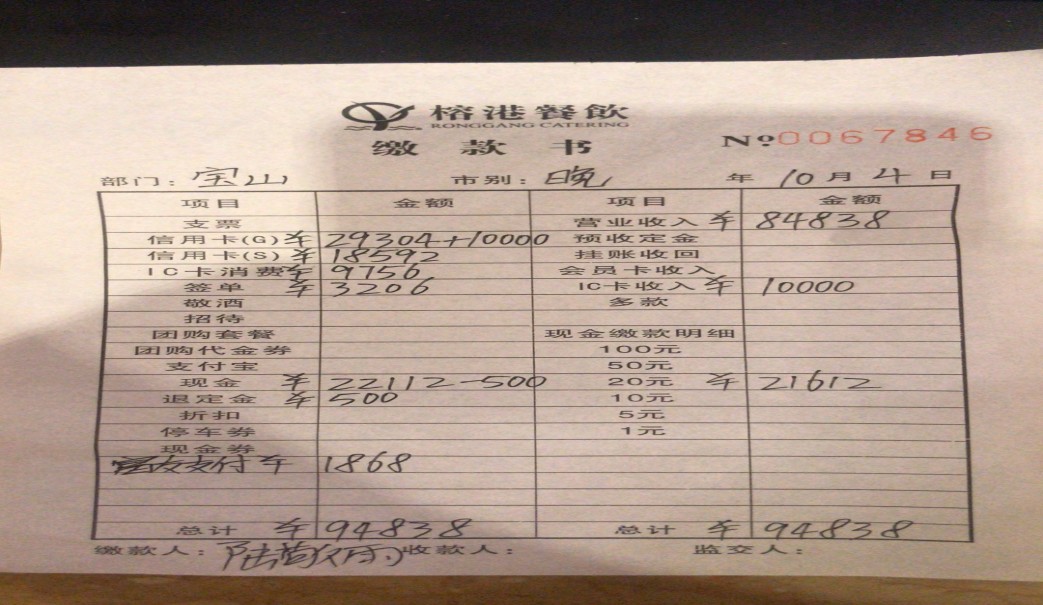 榕港餐飲
RONGGANG CATERING
缴款书 №0067846
部门：宝山 市别：晚 年10月4日
项目 金额 项目 金额
支票 营业收入 ¥ 84838
信用卡(G) ¥ 29304+10000 预收定金
信用卡(S) ¥ 18592 挂账收回
IC卡消费 ¥ 9756 会员卡收入
签单 ¥ 3206 IC卡收入 ¥ 10000
敬酒 多款
招待
团购套餐 现金缴款明细
团购代金券 100元
支付宝 50元
现金 ¥ 22112-500 20元 ¥ 21612
退定金 ¥ 500 10元
折扣 5元
停车券 1元
现金券
支付 ¥ 1868
总计 ¥ 94838 总计 ¥ 94838
缴款人：陆 收款人： 监交人：